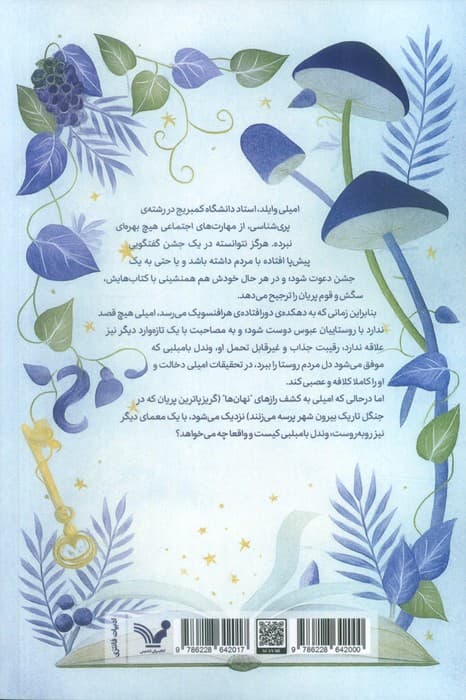 امیلی وایلد، استاد دانشگاه کمبریج در رشته‌ی
پری‌شناسی، از مهارت‌های اجتماعی هیچ بهره‌ای
نبرده. هرگز نتوانسته در یک جشن گفتگویی
پیش‌پا افتاده با مردم داشته باشد و یا حتی به یک
جشن دعوت شود؛ و در هر حال خودش هم همنشینی با کتاب‌هایش،
سگش و قوم پریان را ترجیح می‌دهد.
بنابراین زمانی که به دهکده‌ی دورافتاده‌ی هرافنسویک می‌رسد، امیلی هیچ قصد
ندارد با روستاییان عبوس دوست شود؛ و به مصاحبت با یک تازه‌وارد دیگر نیز
علاقه ندارد، رقیبت جذاب و غیرقابل تحمل او، وندل بامبلبی که
موفق می‌شود دل مردم روستا را ببرد، در تحقیقات امیلی دخالت و
او را کاملا کلافه و عصبی کند.
اما درحالی که امیلی به کشف رازهای "نهان‌ها" (گریزپاترین پریان که در
جنگل تاریک بیرون شهر پرسه می‌زنند) نزدیک می‌شود، با یک معمای دیگر
نیز روبه‌روست: وندل بامبلبی کیست و واقعا چه می‌خواهد؟
ادبیات فانتزی
9 786228 642017
9 786228 642000